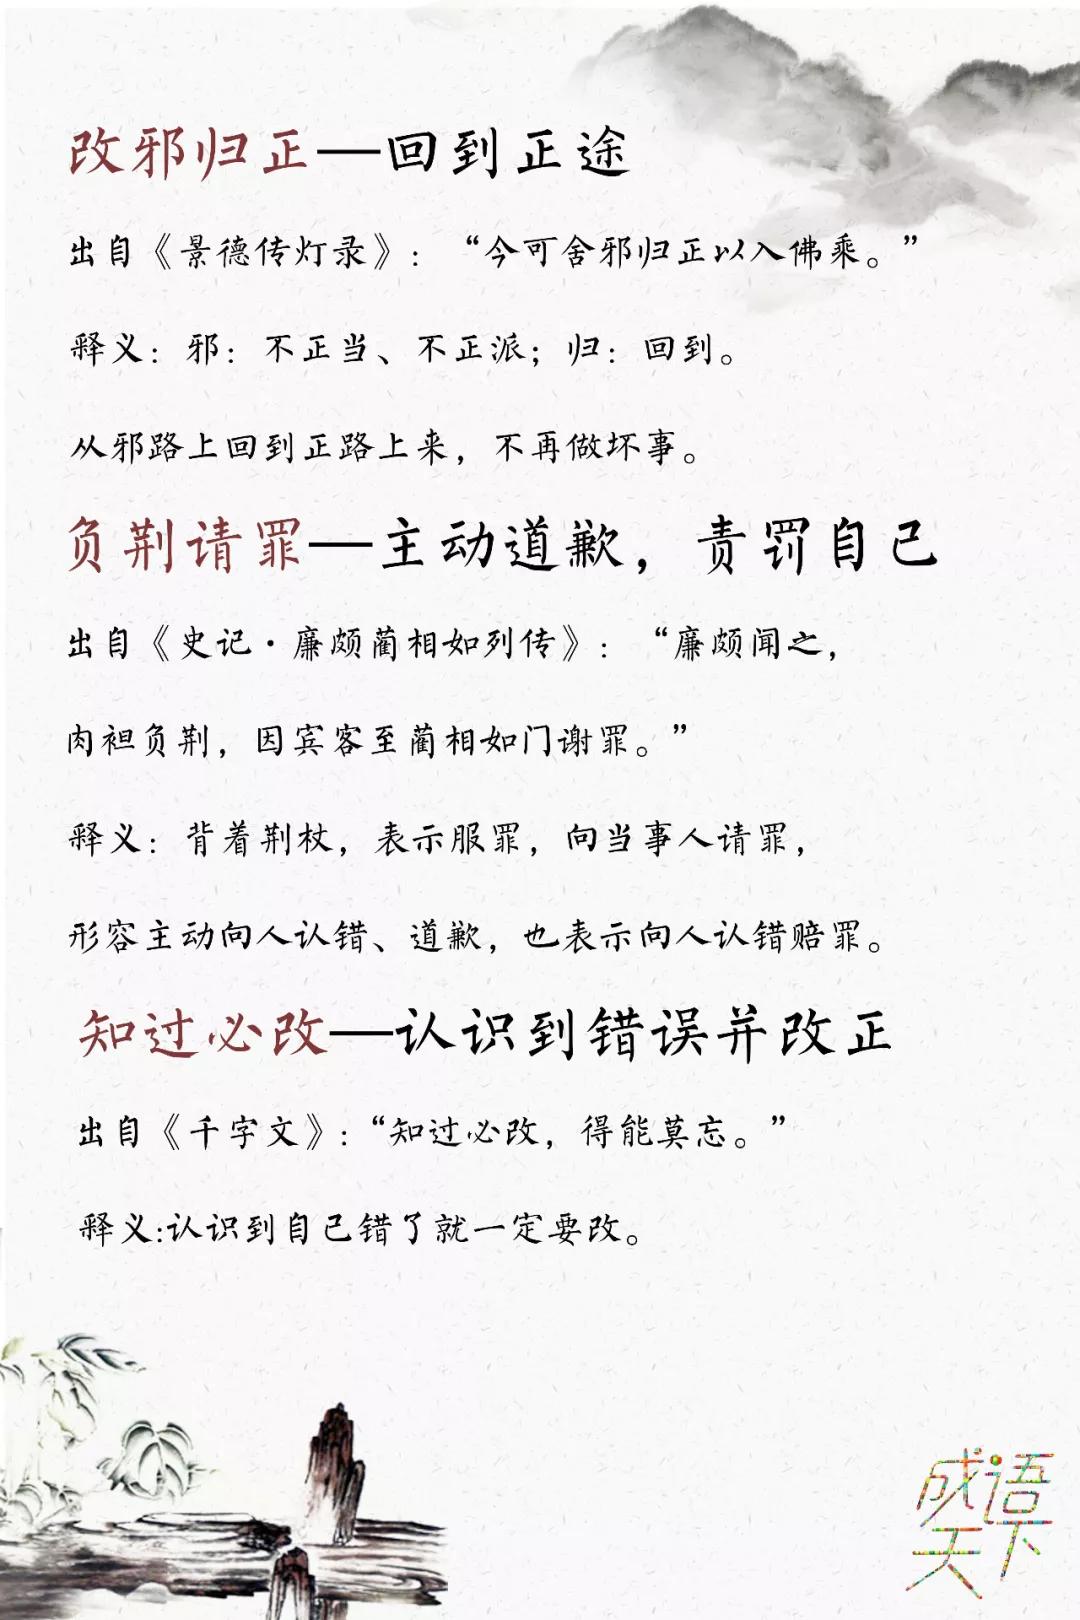 改邪归正—回到正途
出自《景德传灯录》：“今可舍邪归正以入佛乘。”
释义：邪：不正当、不正派；归：回到。
从邪路上回到正路上来，不再做坏事。
负荆请罪—主动道歉，责罚自己
出自《史记·廉颇蔺相如列传》：“廉颇闻之，
肉袒负荆，因宾客至蔺相如门谢罪。”
释义：背着荆杖，表示服罪，向当事人请罪，
形容主动向人认错、道歉，也表示向人认错赔罪。
知过必改—认识到错误并改正
出自《千字文》:“知过必改，得能莫忘。”
释义:认识到自己错了就一定要改。
成语
天下